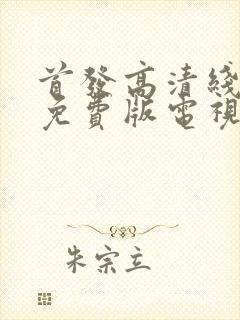 首發高清綫
免費版電視
朱宗立